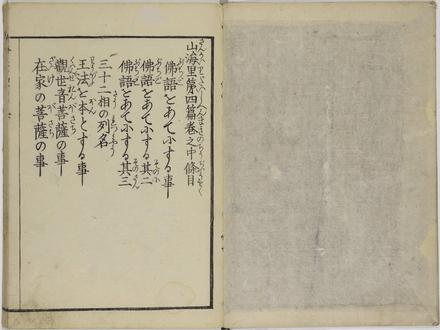 山海里第四篇巻之中條目
佛語をあてにする事
佛語をあてにする其二
佛語をあてにする其三
三十二相の列名
王法を本とする事
觀世音菩薩の事
在家の菩薩の事